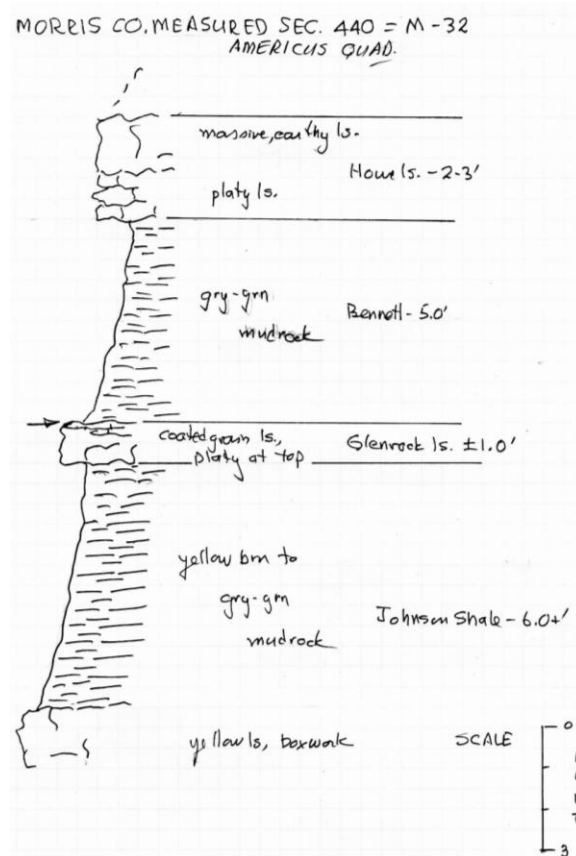 MORRIS CO. MEASURED SEC. 440 = M-32
AMERICUS QUAD.
massive, earthy ls.
Howe ls. - 2-3'
platy ls.
gry-grn
mudrock
Bennett - 5.0'
coated grain ls.,
platy at top
Glenrock ls. ±1.0'
yellow brn to
gry-grn
mudrock
Johnson Shale - 6.0+'
yellow ls, boxwork
SCALE
0
3